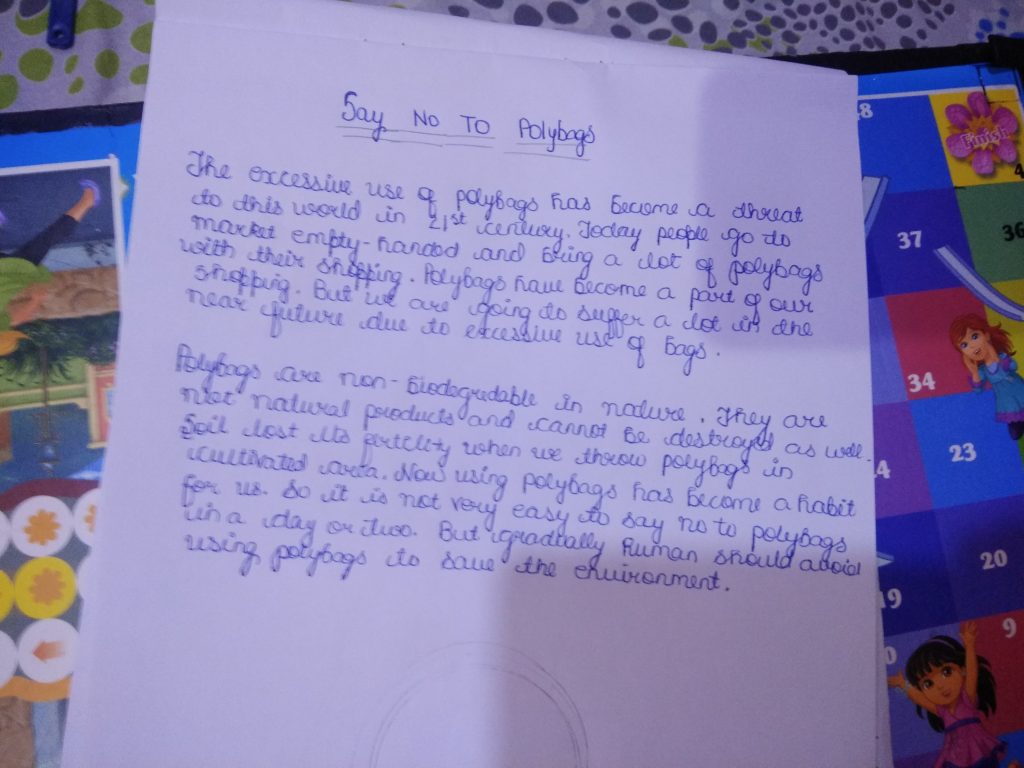 Say No To Polybags
The excessive use of polybags has become a threat
to this world in 21st century. Today people go to
market empty-handed and bring a lot of polybags
with their shopping. Polybags have become a part of our
shopping. But we are going to suffer a lot in the
near future due to excessive use of bags.
Polybags are non-biodegradable in nature. They are
not natural products and cannot be destroyed as well.
Soil lost its fertility when we throw polybags in
cultivated area. Now using polybags has become a habit
for us. So it is not very easy to say no to polybags
in a day or two. But gradually human should avoid
using polybags to save the environment.
48
Finish
37
36
34
23
20
19
9